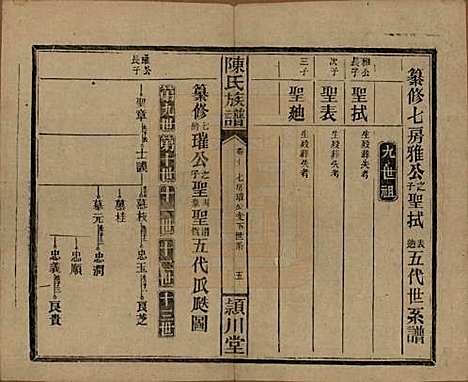 纂修七房雅公之子聖拭表𢌞五代世系譜
九世祖
雅公長子
聖拭
生歿葬失考
次子
聖表
生歿葬失考
三子
聖𢌞
生歿葬失考
陳氏族譜
卷
七房璀公支下世系
五
潁川堂
纂修七房璀公之子聖章聖五代瓜瓞圖
第九世 第十世 十一世 十二世 十三世
璀公長子
聖章
士議
慕枝
忠玉
良芝
慕桂
慕元
忠潤
忠順
忠義
良貴